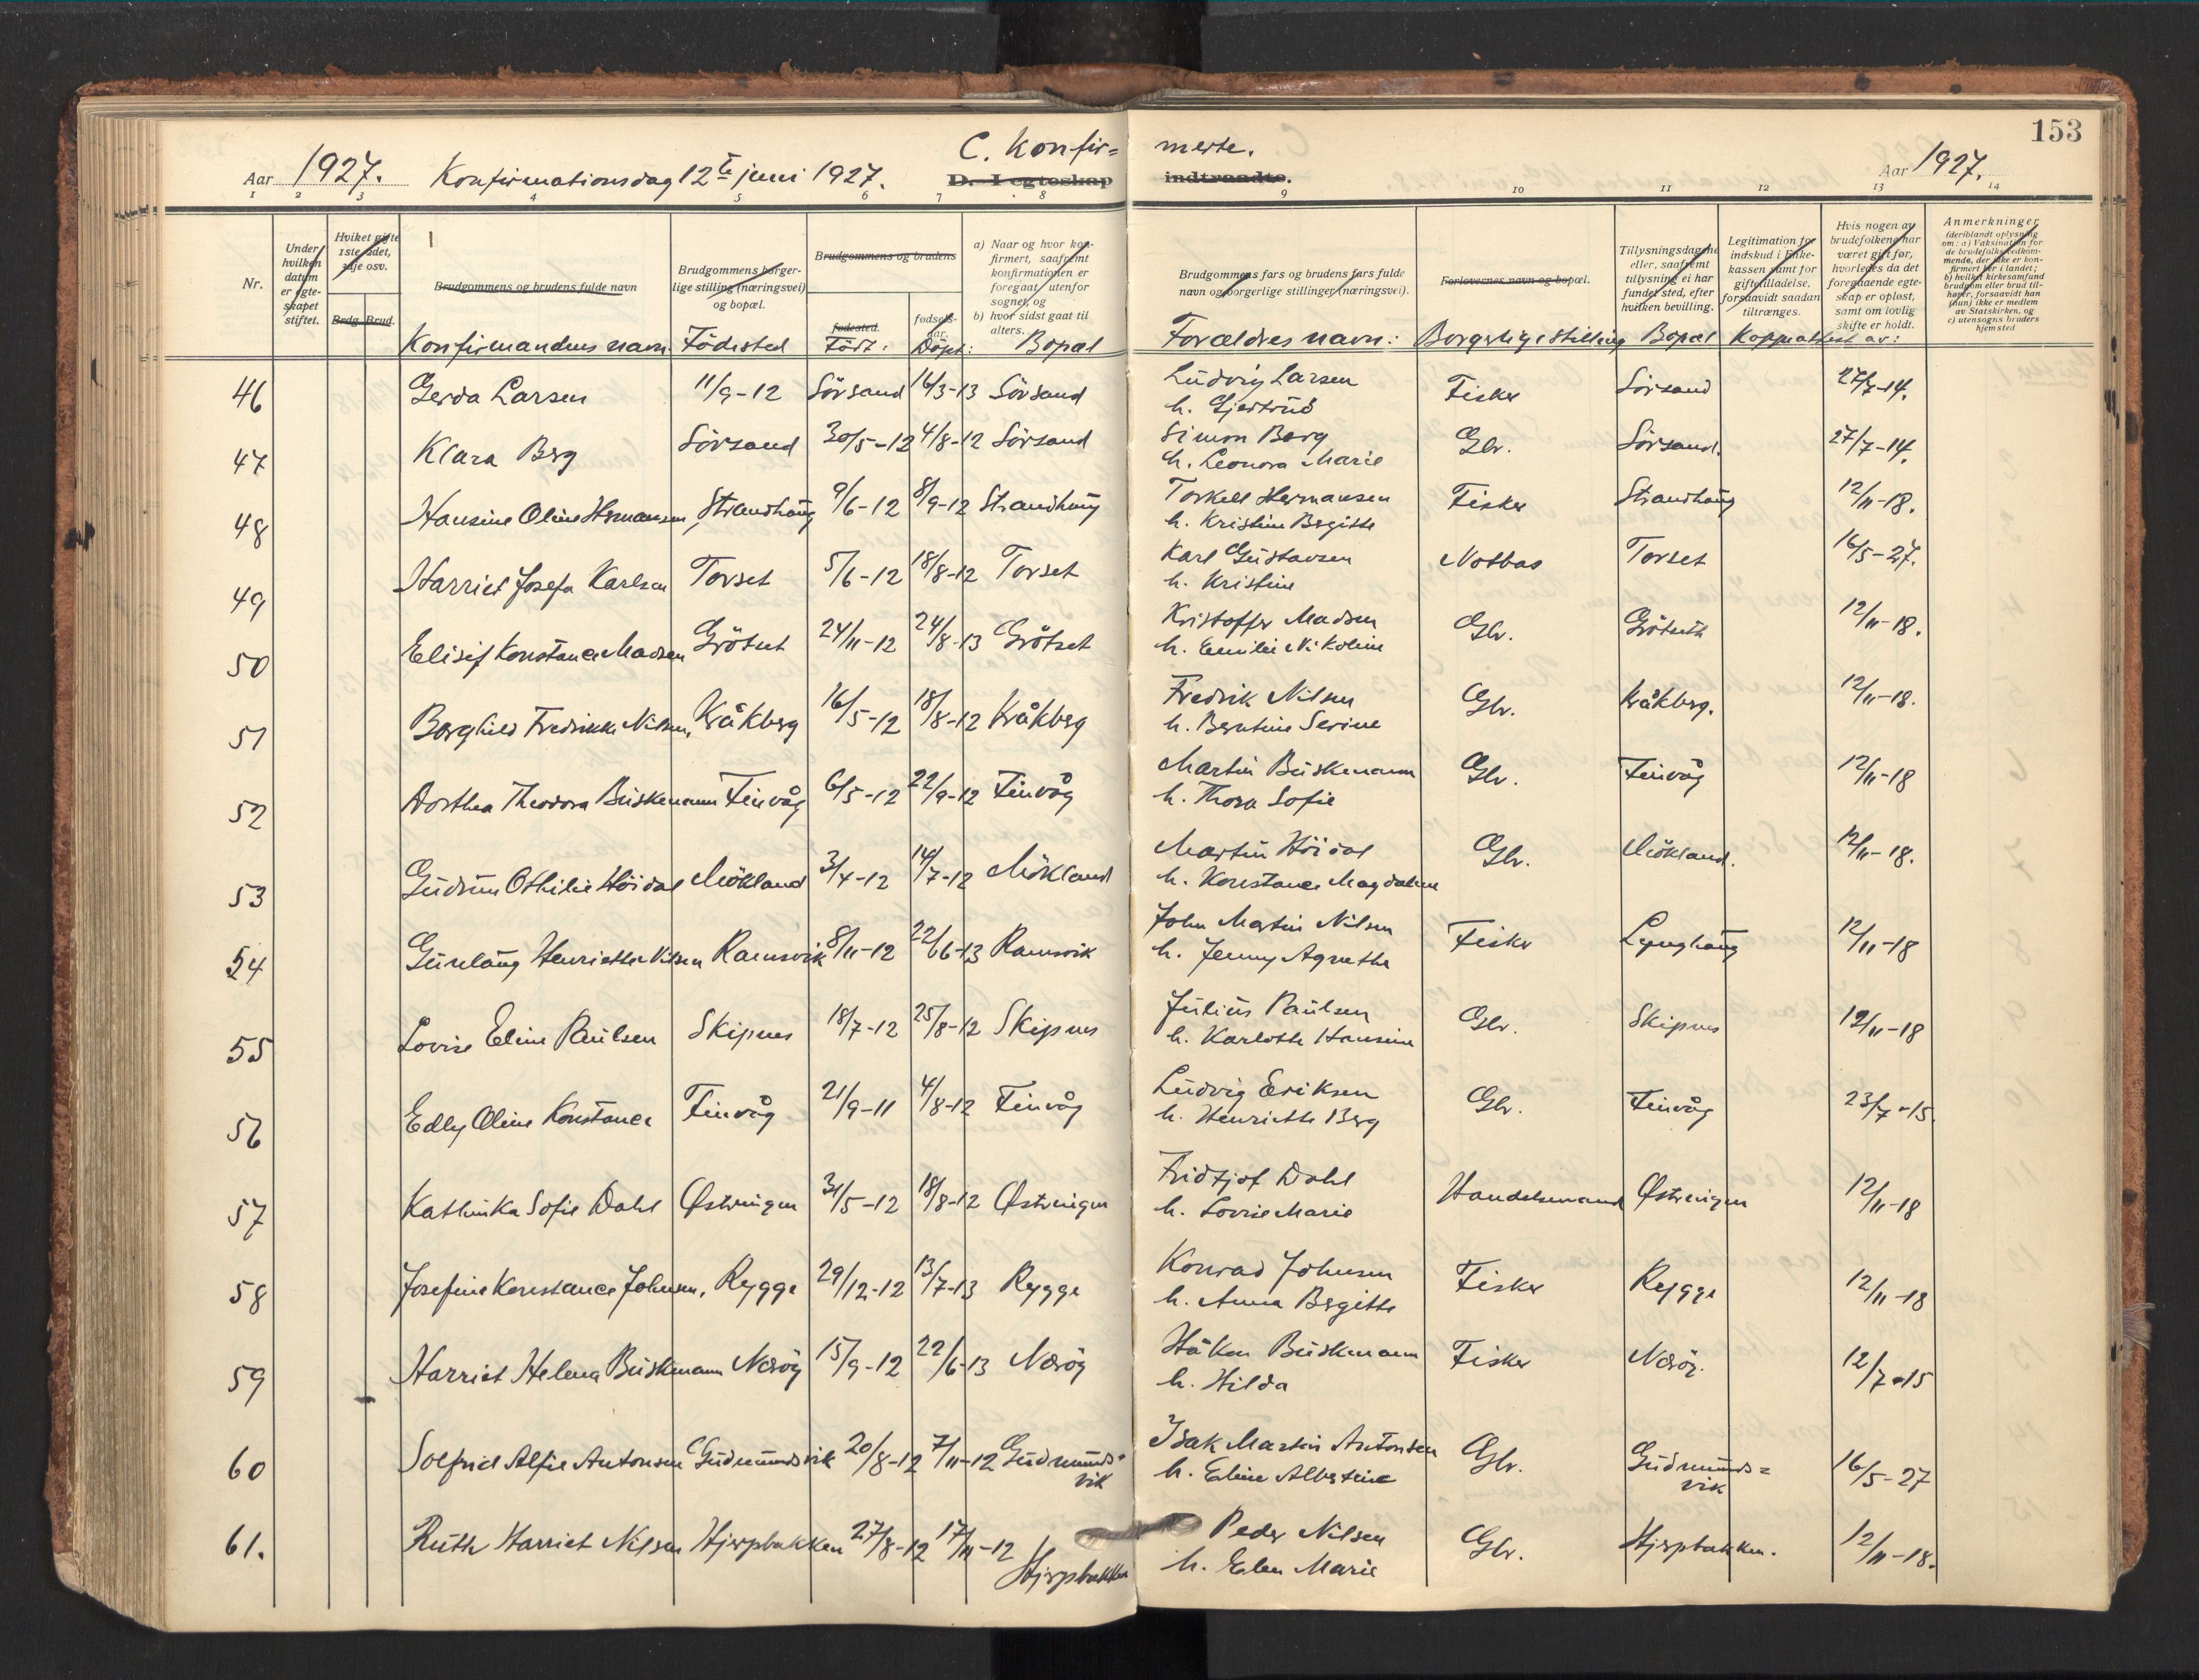 153
C. Konfir= merte.
Aar 1927. Konfirmationsdag 12te juni 1927. D. I egteskap indtraadte. Aar 1927.
1 2 3 4 5 6 7 8 9 10 11 12 13 14
Nr.
Under hvilken datum er egteskapet stiftet.
Hvilket gifte 1ste, 2det, 3dje osv.
Brdg. Brud.
Brudgommens og brudens fulde navn
Brudgommens borgerlige stilling (næringsvei) og bopæl.
Brudgommens og brudens
fødested. fødselsaar.
a) Naar og hvor konfirmert, saafremt konfirmationen er foregaat utenfor sognet, og
b) hvor sidst gaat til alters.
Brudgommens fars og brudens fars fulde navn og borgerlige stillinger (næringsvei).
Forlovernes navn og bopæl.
Tillysningsdagene eller, saafremt tillysning ei har fundet sted, efter hvilken bevilling.
Legitimation for indskud i Enkekassen samt for giftetilladelse, forsaavidt saadan tiltrænges.
Hvis nogen av brudefolkene har været gift før, hvorledes da det foregaaende egteskap er opløst, samt om lovlig skifte er holdt.
Anmerkninger (deriblandt oplysning om: a) Vaksination for de brudefolks vedkommende, der ikke er konfirmert her i landet; b) hvilket kirkesamfund brudgom eller brud tilhører, forsaavidt han (hun) ikke er medlem av Statskirken, og c) utensogns bruders hjemsted
Konfirmandens navn. Födested Födt: Döpt: Bopæl Forældres navn: Borgerlige stilling Bopæl Koppattest av:
46 Gerda Larsen 11/9-12 Sörsand 16/3-13 Sörsand Ludvig Larsen Fisker Sörsand 27/7-14.
h. Gjertrud
47 Klara Berg Sörsand 30/5-12 4/8-12 Sörsand Simon Berg Gbr. Sörsand. 27/7-14.
h. Leonora Marie
48 Hansine Oline Hermansen, Strandhaug 9/6-12 8/9-12 Strandhaug Torkell Hermansen Fisker Strandhaug 12/11-18.
h. Kristine Bergitte
49 Harriet Josefa Karlsen Torset 5/6-12 18/8-12 Torset Karl Gustavsen Notbas Torset 16/5-27.
h. Kristine
50 Elisif Konstance Madsen Grötset 24/11-12 24/8-13 Grötset Kristoffer Madsen Gbr. Grötseth 12/11-18.
h. Emilie Nikoline
51 Borghild Fredrikke Nilsen, Kråkberg 16/5-12 18/8-12 Kråkberg Fredrik Nilsen Gbr. Kråkberg. 12/11-18.
h. Berntine Serine
52 Dorthea Theodora Buskmann Finvåg 6/5-12 22/9-12 Finvåg Martin Buskmann Gbr. Finvåg 12/11-18
h. Thora Sofie
53 Gudrun Othilie Höidal Mökland 3/4-12 14/7-12 Mökland Martin Höidal Gbr. Mökland. 12/11-18.
h. Konstance Magdalene
54 Gunlaug Henriette Nilsen Ramsvik 8/11-12 22/6-13 Ramsvik John Martin Nilsen Fisker Lynghaug 12/11-18
h. Jenny Agnethe
55 Lovise Eline Paulsen Skipnes 18/7-12 25/8-12 Skipnes Julius Paulsen Gbr. Skipnes 12/11-18
h. Karlotte Hansine
56 Edly Oline Konstance Finvåg 21/9-11 4/8-12 Finvåg Ludvig Eriksen Gbr. Finvåg 23/7-15.
h. Henriette Berg
57 Kathinka Sofie Dahl Østvingen 31/5-12 18/8-12 Østvingen Fridtjof Dahl Handelsmand Østvingen 12/11-18
h. Lovise Marie
58 Josefine Konstance Johnsen, Rygge 29/12-12 13/7-13 Rygge Konrad Johnsen Fisker Rygge 12/11-18
h. Anna Bergitte
59 Harriet Helena Buskmann Næröy 15/9-12 22/6-13 Næröy Håkon Buskmann Fisker Næröy. 12/7-15
h. Hilda
60 Solfrid Alfie Antonsen Gudmundsvik 20/8-12 7/11-12 Gudmunds= Isak Martin Antonsen Gbr. Gudmunds= 16/5-27
vik h. Eline Albertine vik
61. Ruth Harriet Nilsen Hjerpbakken 27/8-12 17/11-12 Peder Nilsen Gbr. Hjerpbakken. 12/11-18.
Hjerpbakken h. Elen Marie